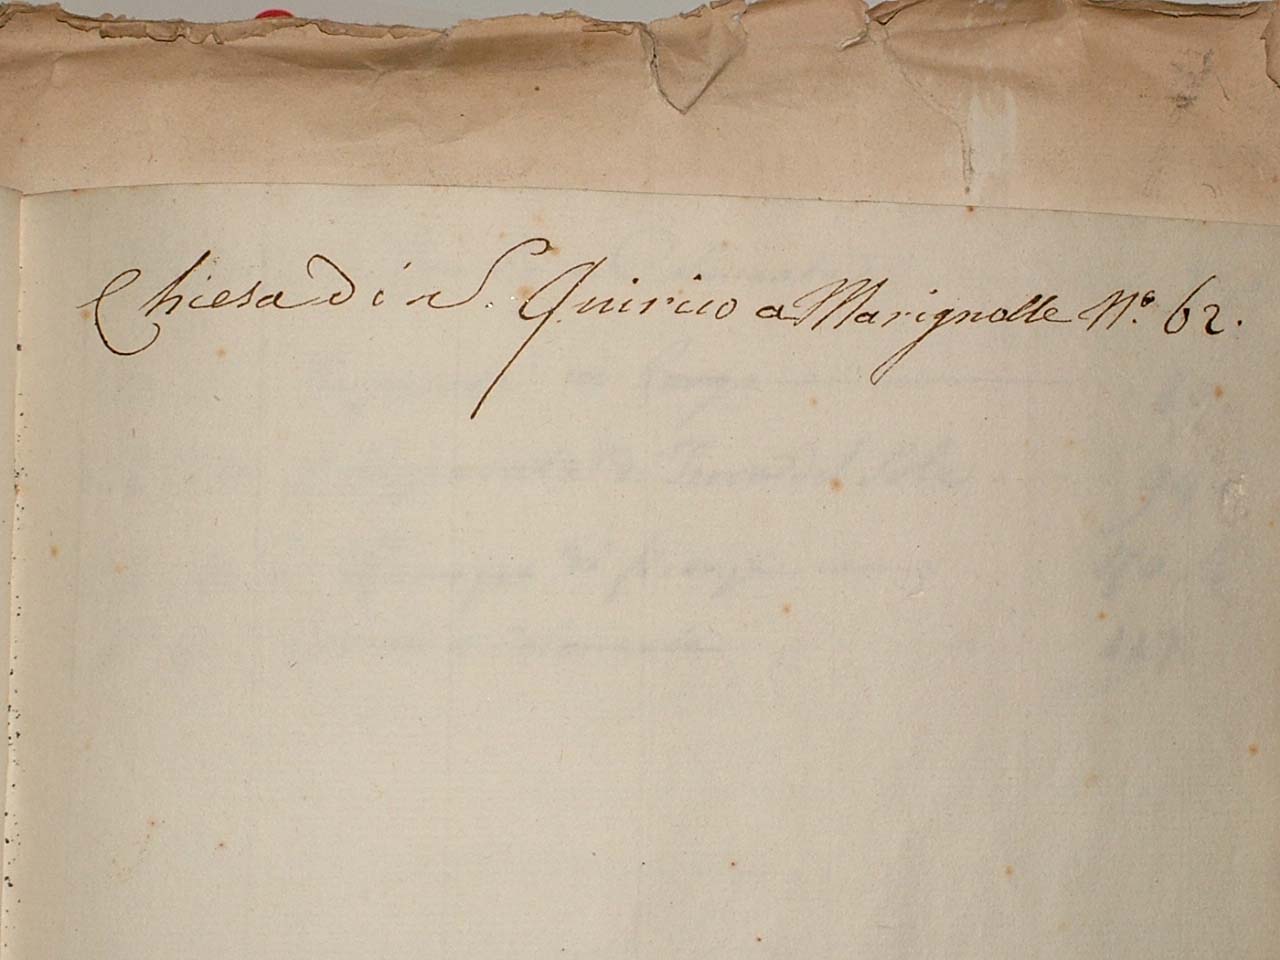 Chiesa Di S. Quirico a Marignolle N.º 62.